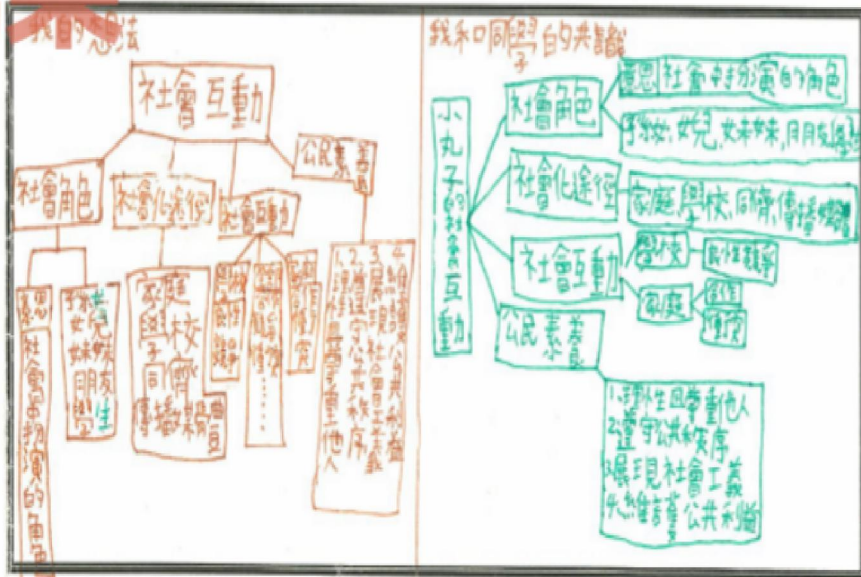 我的想法
社會互動
公民素養
社會角色
社會化途徑
社會互動
意思
社會中扮演的角色
孫女
女兒
妹妹
朋友
學生
家庭
學校
同儕
傳播媒體
1.理性且尊重他人
2.遵守公共秩序
3.展現社會正義
4.維護公共利益
我和同學的共識
小丸子的社會互動
社會角色
意思 社會中扮演的角色
孫女、女兒、妹妹、朋友、學生
社會化途徑
家庭、學校、同儕、傳播媒體
社會互動
學校
家庭
合作
衝突
公民素養
1.理性且尊重他人
2.遵守公共秩序
3.展現社會正義
4.維護公共利益